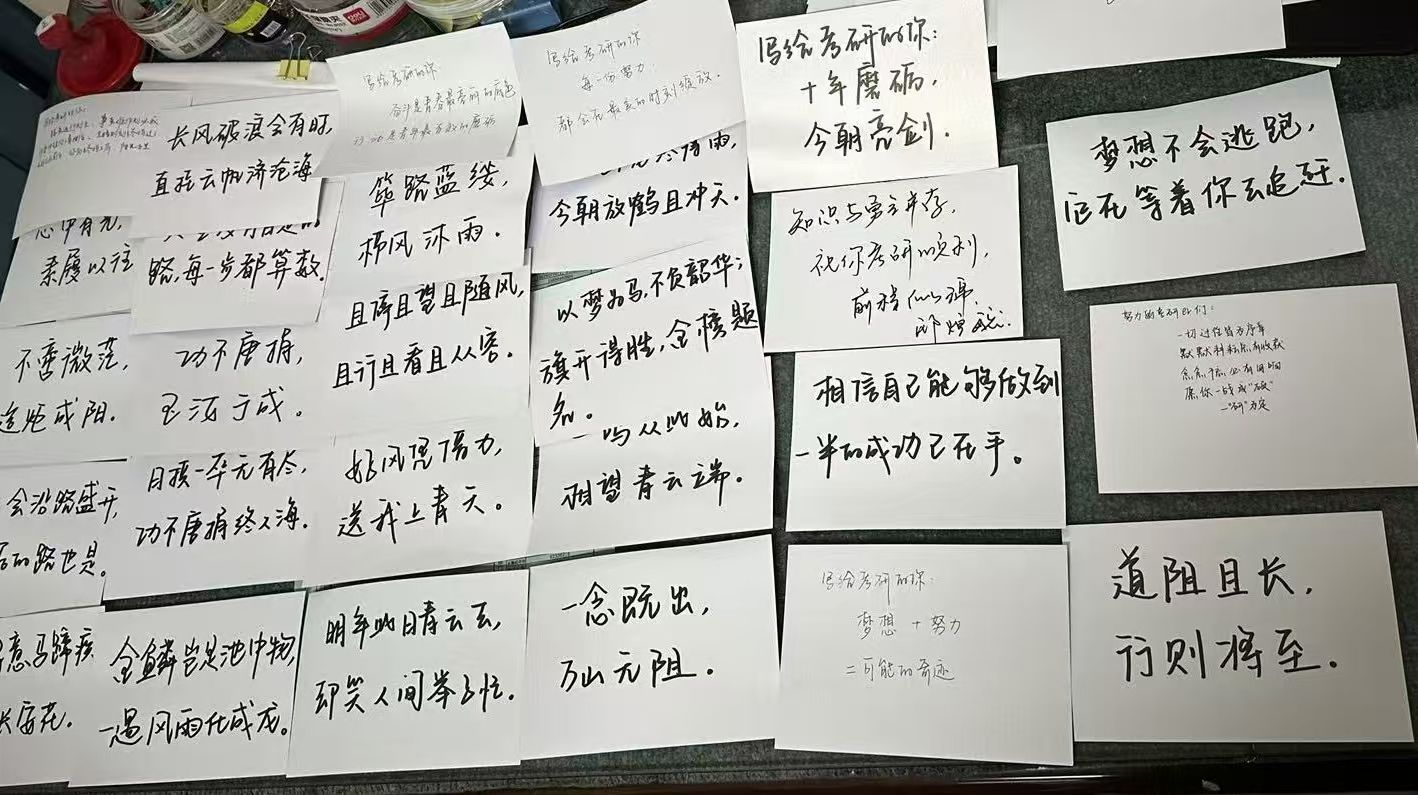 写给考研的你
奋斗是青春最亮丽的底色
行动是青年最有效的磨砺
写给考研的你
每一份努力
都会在最美的时刻绽放.
写给考研的你:
十年磨砺.
今朝亮剑.
梦想不会逃跑,
它在等着你去追赶.
长风破浪会有时,
直挂云帆济沧海
筚路蓝缕,
栉风沐雨.
今朝放鹤且冲天.
知识与勇气并存,
祝你考研顺利,
前程似锦.
心中有光,
素履以往
路,每一步都算数.
且停且望且随风,
且行且看且从容。
以梦为马,不负韶华;
旗开得胜,金榜题
名。
努力的考研er们:
一切过往皆为序章
默默耕耘总有收获
念念不忘,必有回响
愿你一战成"硕"
一"研"为定
不啻微茫,
造炬成阳.
功不唐捐,
玉汝于成。
相信自己能够做到
一半的成功已在手。
会沿路盛开,
的路也是.
日拱一卒无有尽,
功不唐捐终入海.
好风凭借力,
送我上青天。
一鸣从此始,
相望青云端.
意马蹄疾
长安花.
金鳞岂是池中物,
一遇风雨化成龙。
明年此日青云去,
却笑人间举子忙.
一念既出,
万山无阻.
写给考研的你:
梦想 + 努力
=可能的奇迹
道阻且长,
行则将至.